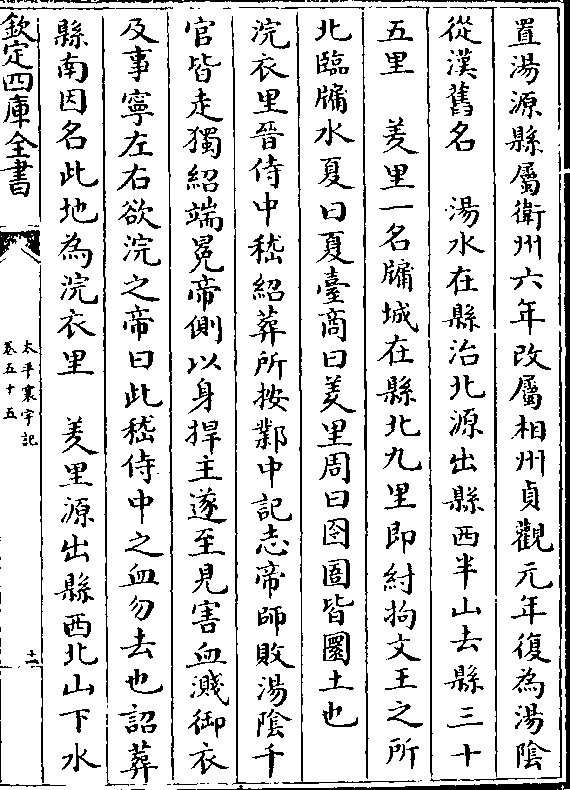 置湯源縣屬衛州六年改屬相州貞觀元年復為湯陰
從漢舊名　湯水在縣治北源出縣西半山去縣三十
五里　羑里一名牖城在縣北九里即紂拘文王之所
北臨牖水夏曰夏臺商曰羑里周曰囹圄皆圜土也
浣衣里晉侍中嵇紹葬所按鄴中記志帝師敗湯陰千
官皆走獨紹端冕帝側以身捍主遂至見害血濺御衣
及事寧左右欲浣之帝曰此嵇侍中之血勿去也詔葬
縣南因名此地為浣衣里　羑里源出縣西北山下水
欽定四庫全書
太平寰宇記
卷五十五
十二